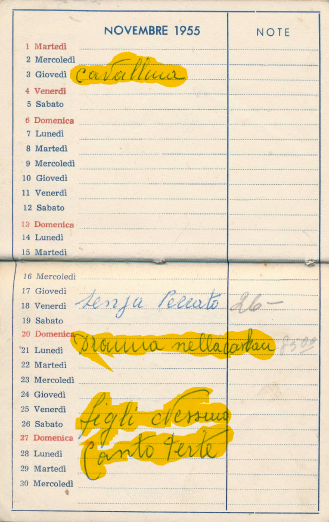 NOVEMBRE 1955 NOTE
1 Martedì
2 Mercoledì
3 Giovedì Cavallina
4 Venerdì
5 Sabato
6 Domenica
7 Lunedì
8 Martedì
9 Mercoledì
10 Giovedì
11 Venerdì
12 Sabato
13 Domenica
14 Lunedì
15 Martedì
16 Mercoledì
17 Giovedì
18 Venerdì Senza Peccato 26-
19 Sabato
20 Domenica
21 Lunedì Dramma nella
22 Martedì
23 Mercoledì
24 Giovedì
25 Venerdì figli di nessuno
26 Sabato
27 Domenica
28 Lunedì Canto
29 Martedì
30 Mercoledì